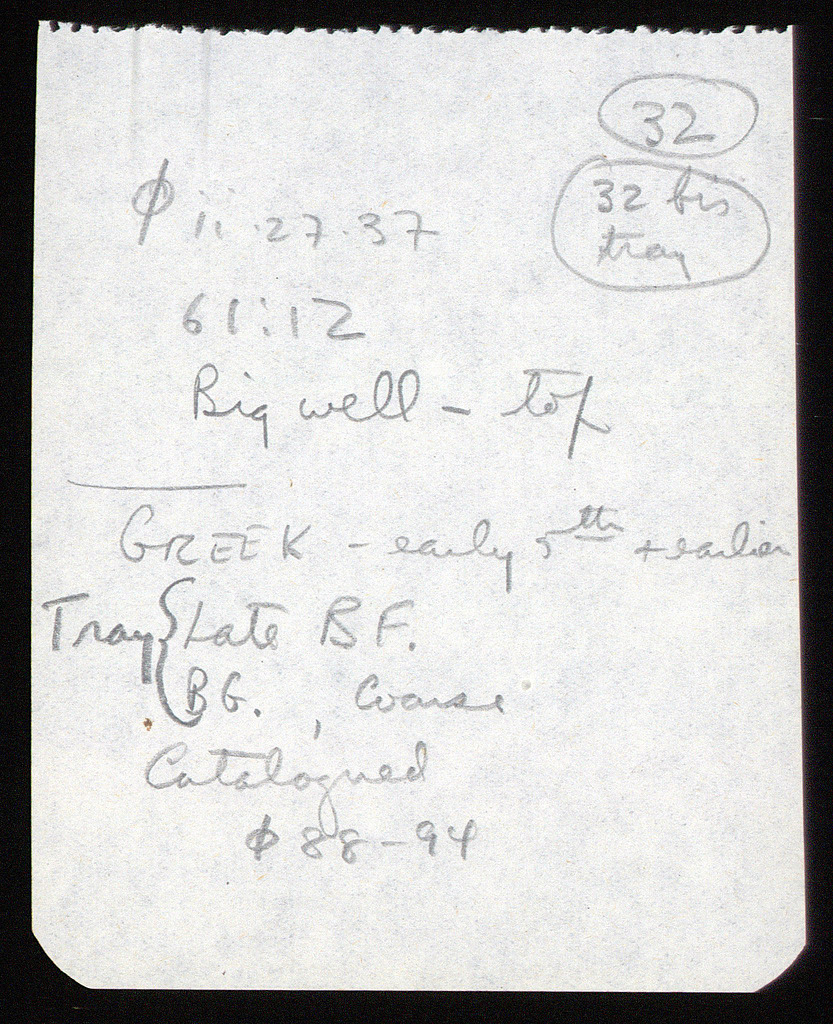 32
32 bis
tray
φ ii·27·37
61:12
Big well - top
GREEK - early 5th + earlier
Tray { Late BF.
BG. , Coarse
Catalogued
φ 88-94